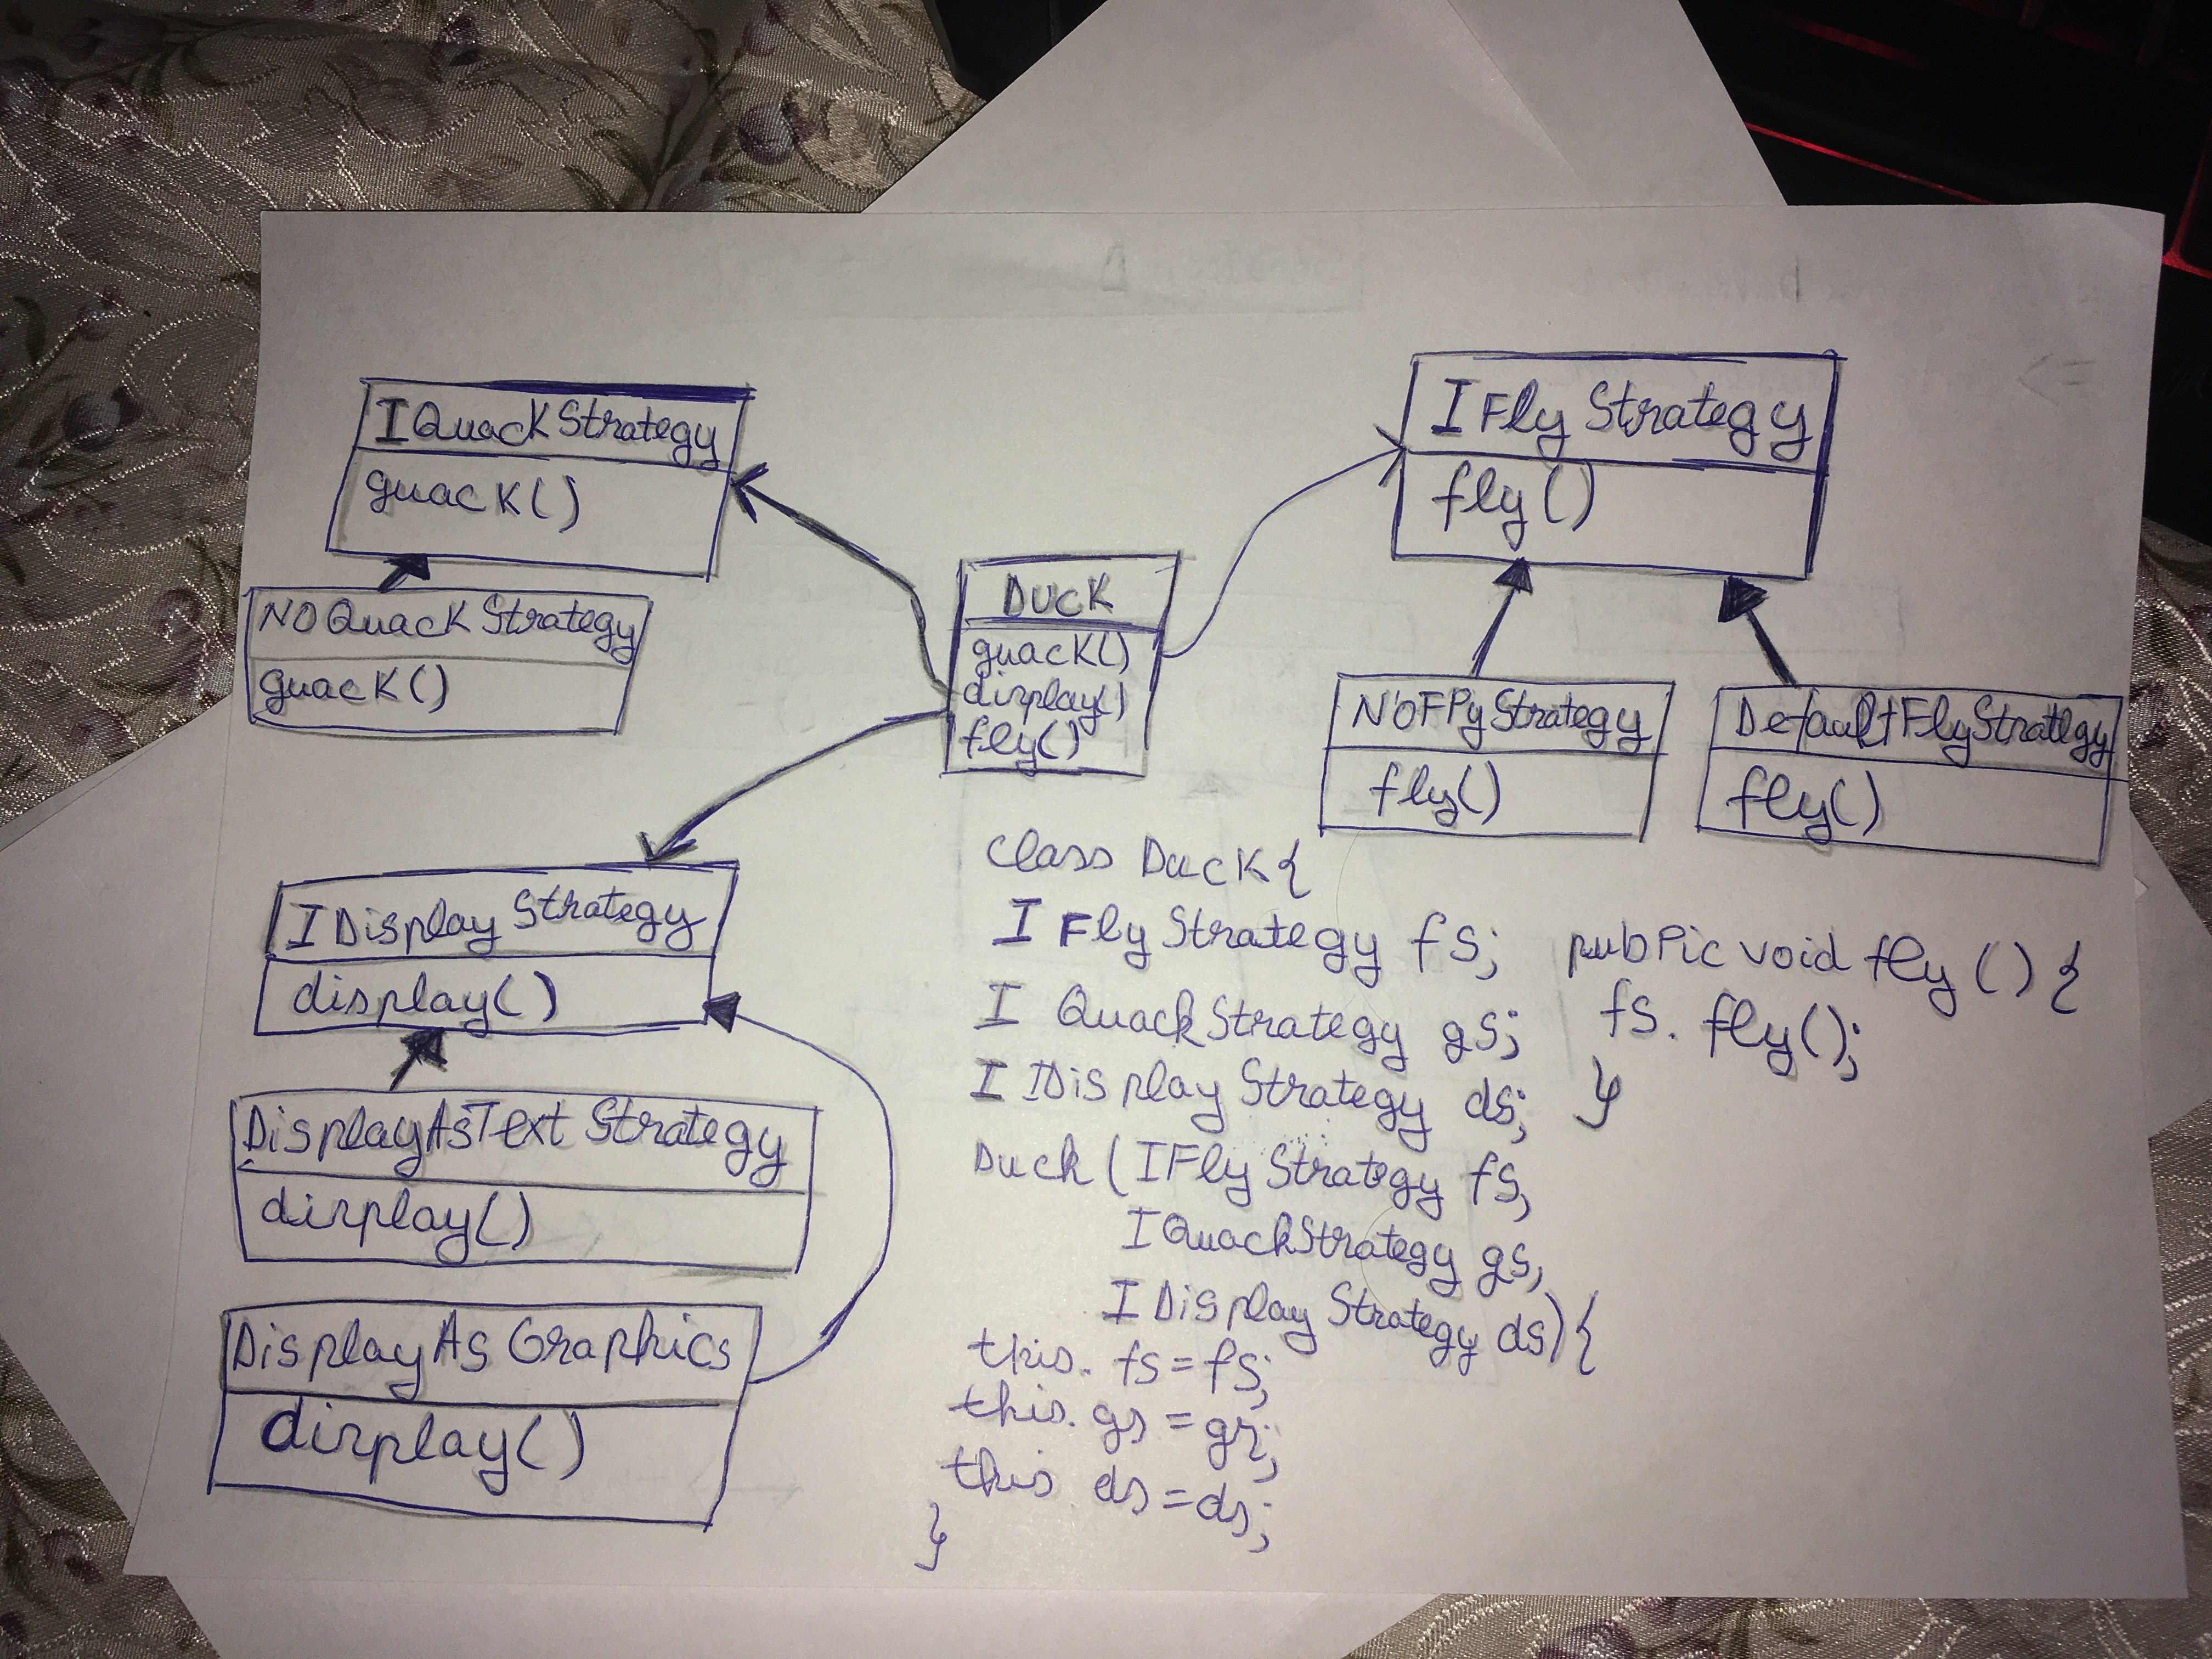 IQuackStrategy
quack()
NOQuackStrategy
quack()
IDisplay Strategy
display()
DisplayAsText Strategy
display()
DisplayAs Graphics
display()
Duck
quack()
display()
fly()
IFly Strategy
fly()
NoFlyStrategy
fly()
DefaultFlyStrategy
fly()
class Duck{
IFly Strategy fs;
I QuackStrategy qs;
I Display Strategy ds;
Duck (IFly Strategy fs,
IQuackStrategy qs,
IDisplay Strategy ds){
this. fs = fs;
this. qs = qs;
this. ds = ds;
}
public void fly () {
fs. fly();
}